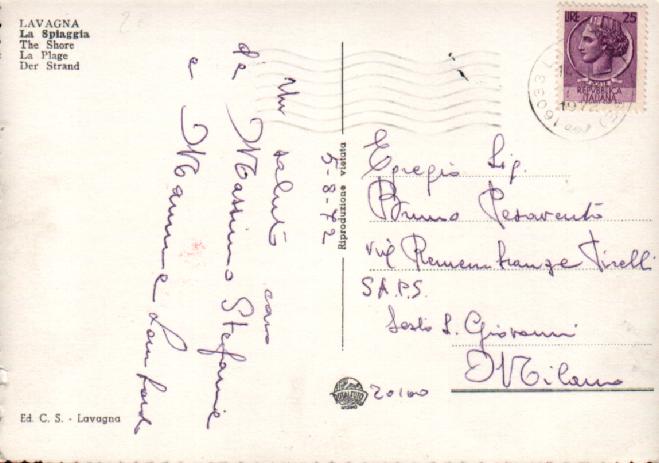 LAVAGNA
La Spiaggia
The Shore
La Plage
Der Strand
Un saluto caro
da Massimo Stefania
e Mamma Lombardi
5-8-72
Riproduzione vietata
LIRE 25
POSTE
REPUBBLICA
ITALIANA
16033 L
Egregio Sig.
Bruno Pesavento
via Rimembranze Tirelli
S.A.P.S.
Sesto S. Giovanni
Milano
20100
Ed. C. S. - Lavagna